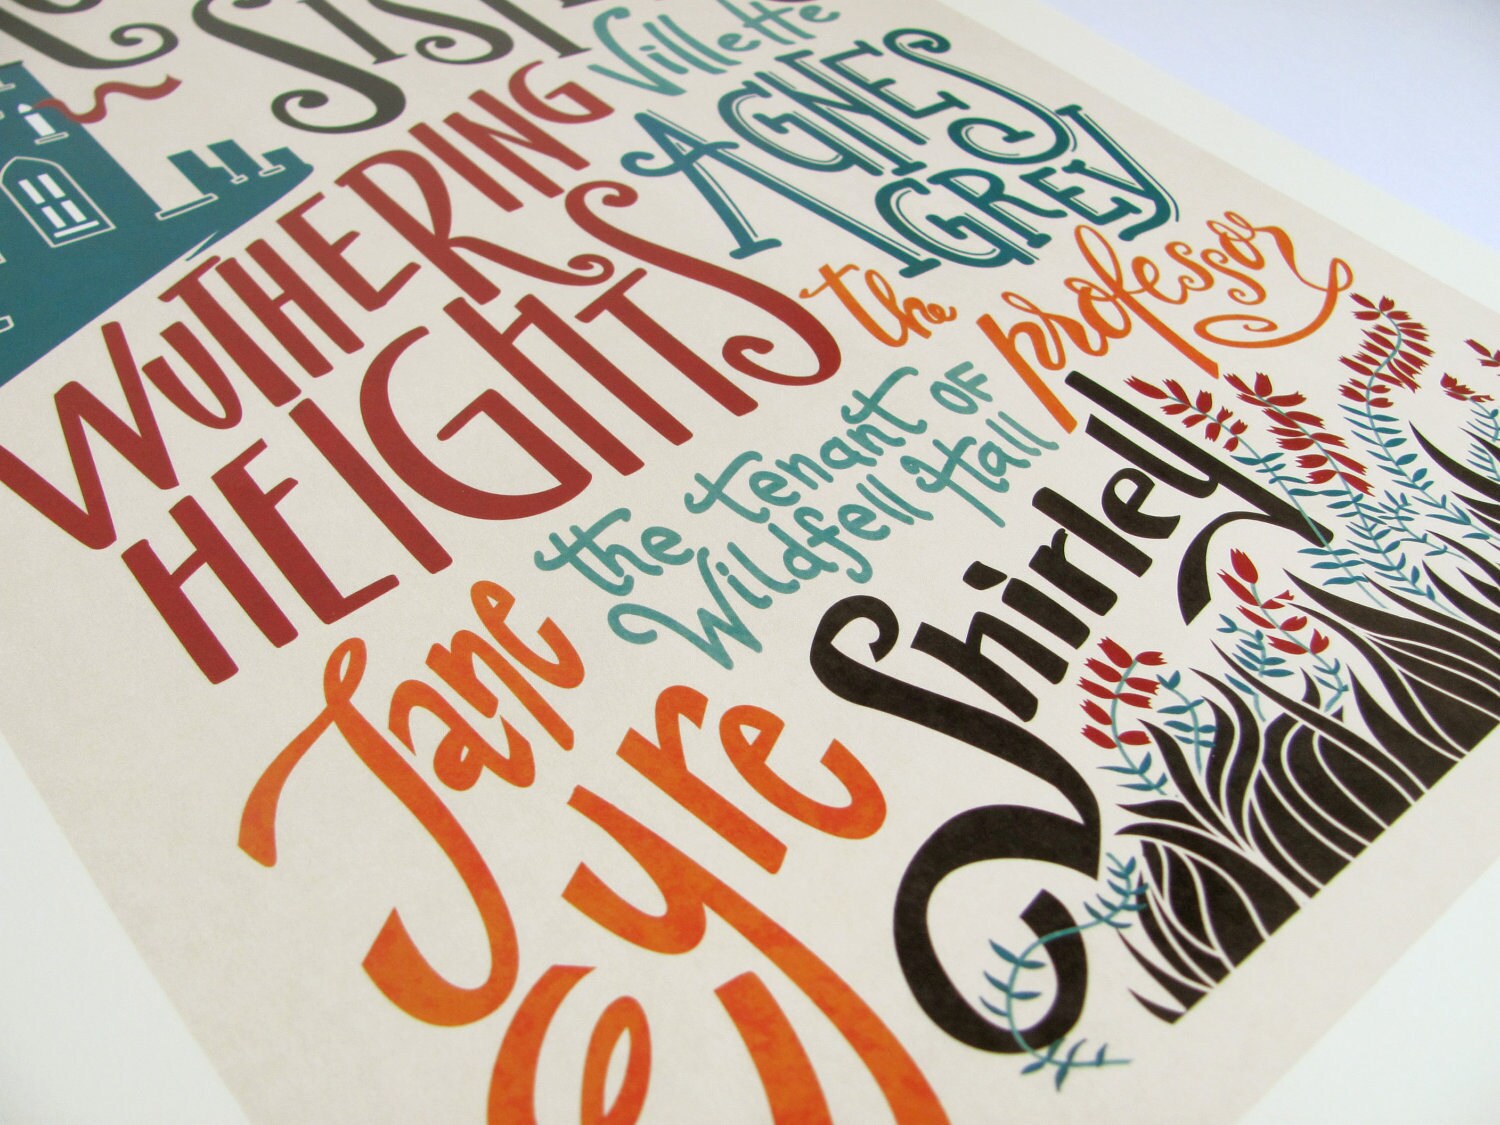 Villette
WUTHERING
HEIGHTS
AGNES
GREY
the professor
the tenant OF
Wildfell Hall
Shirley
Jane
Eyre